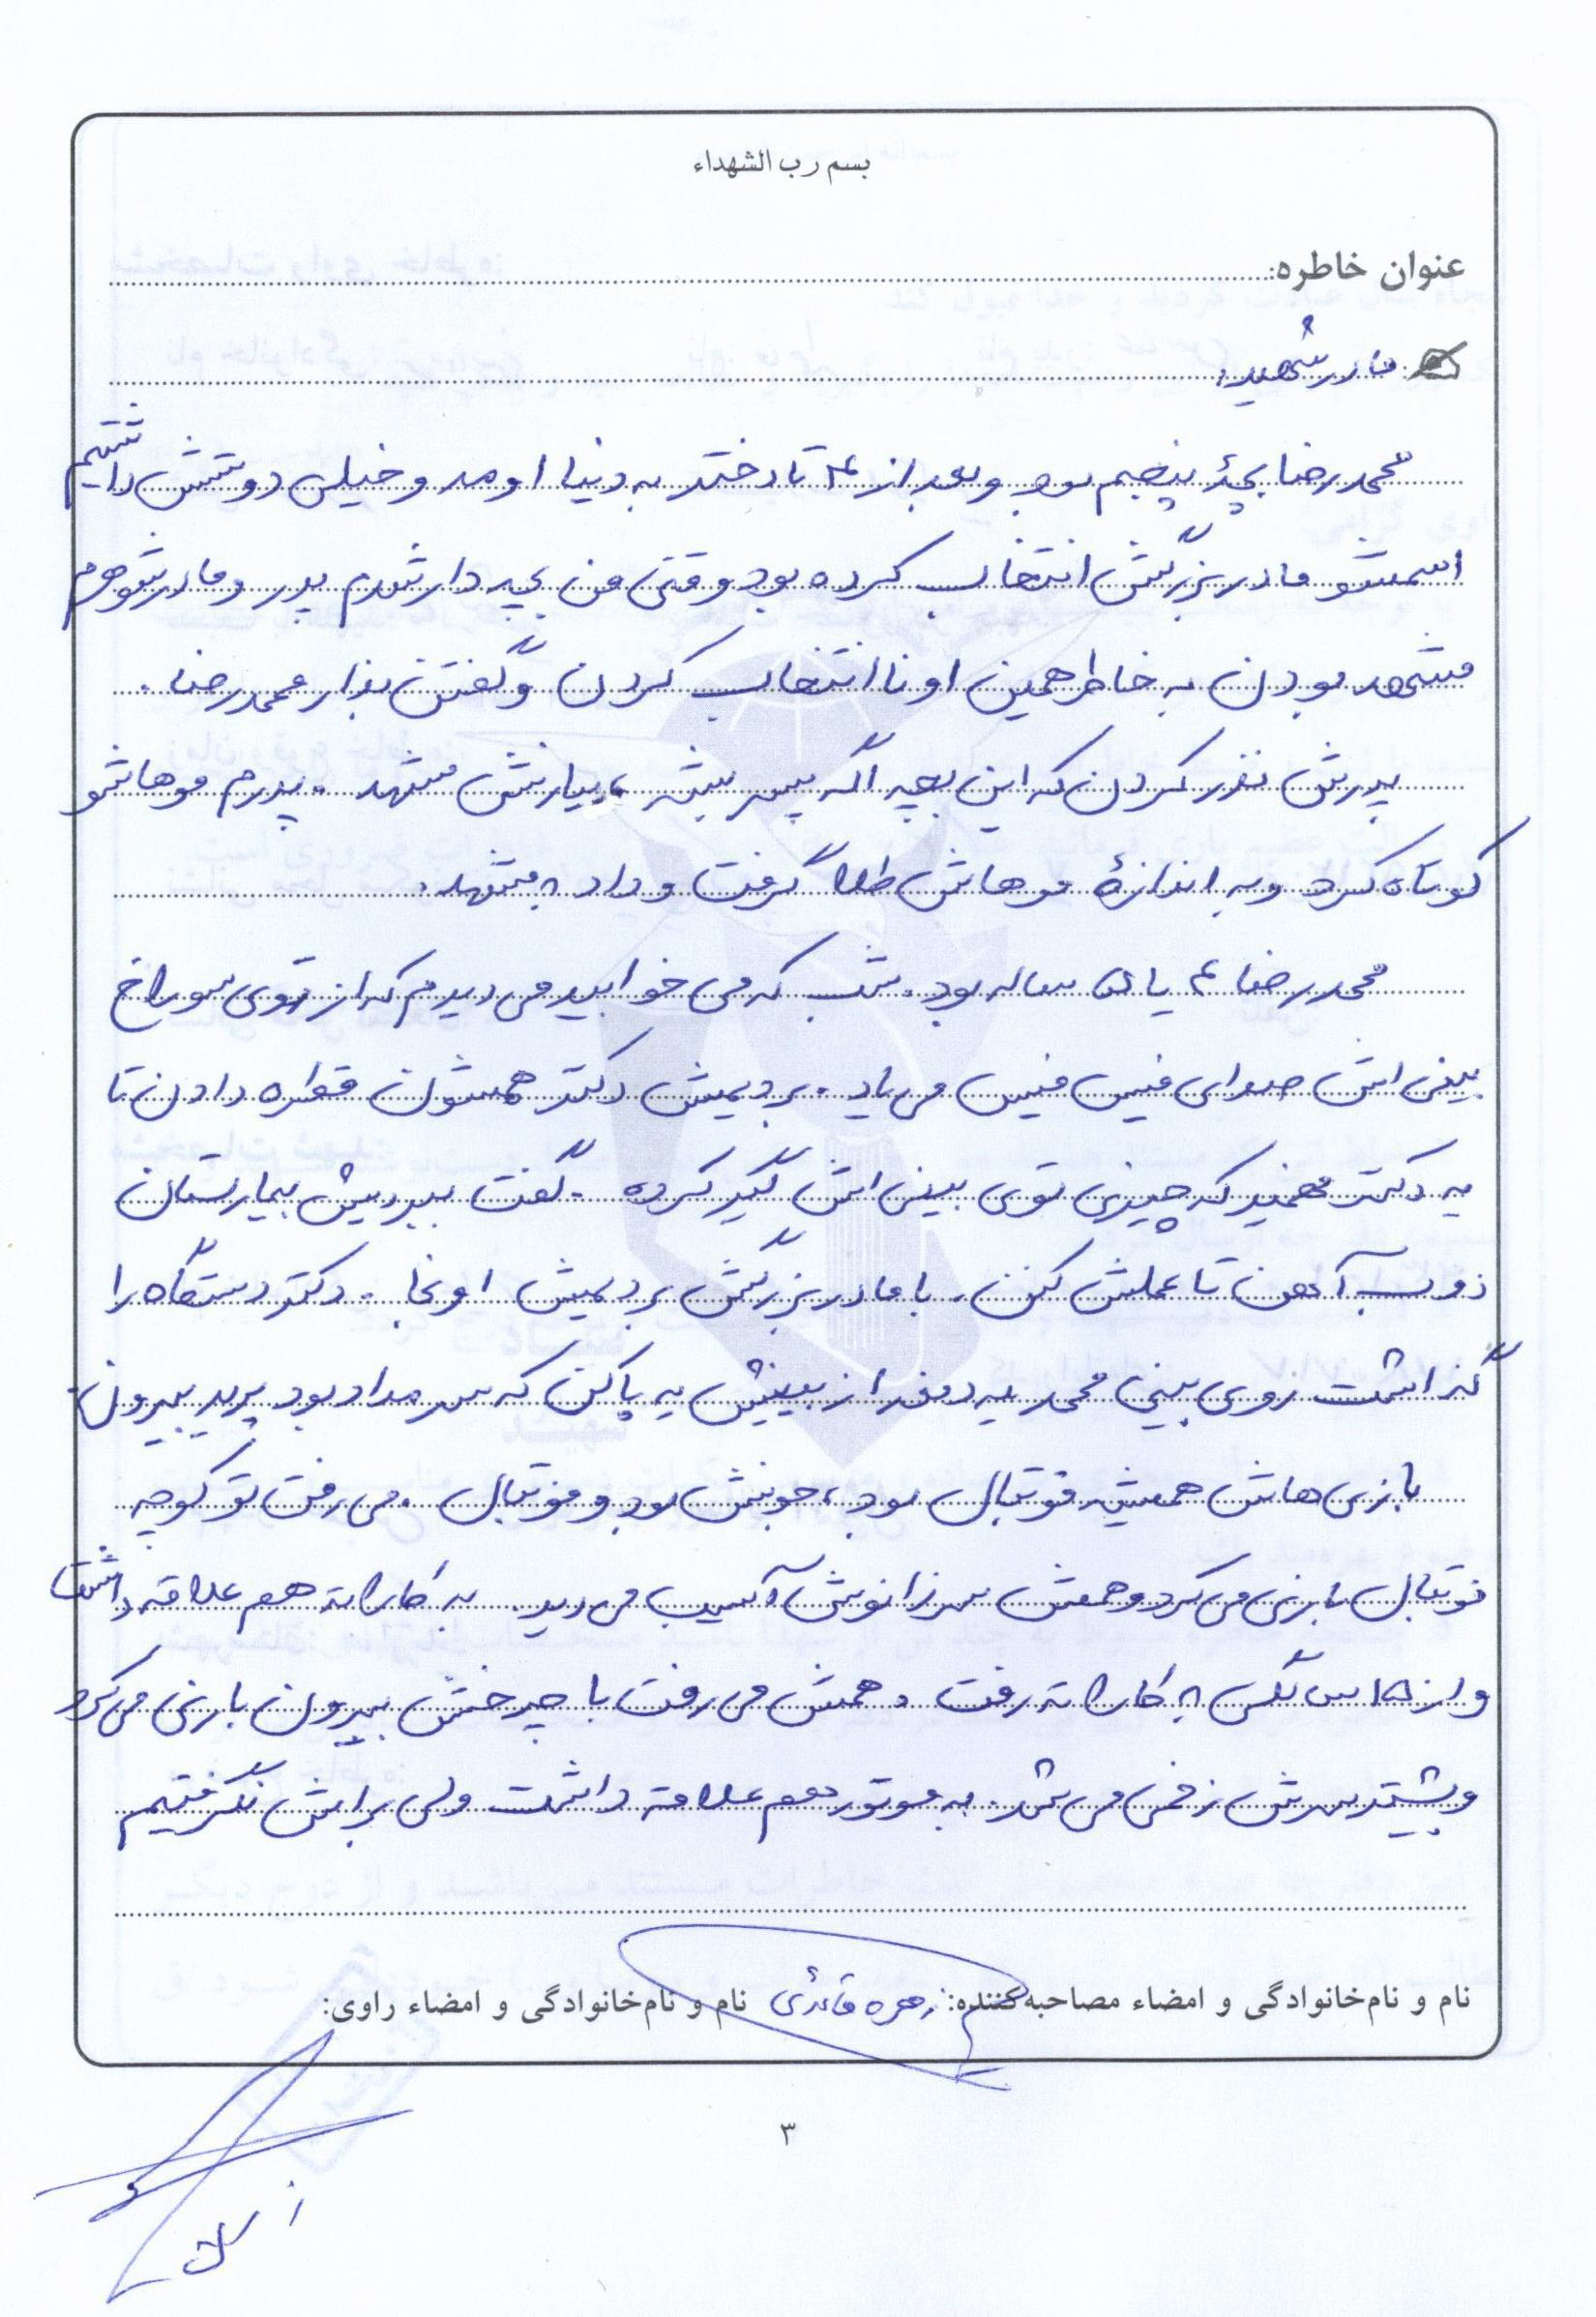 بسم رب الشهداء
عنوان خاطره:
مادر شهید:
محمدرضا بچهٔ پنجم بود و بعد از ۴ تا دختر به دنیا اومد و خیلی دوستش داشتیم
اسمشو مادربزرگش انتخاب کرده بود وقتی من بچه دار شدم پدر و مادر شوهرم
مشهد بودن به خاطر همین اونا انتخاب کردن و گفتن بذار محمدرضا.
پدرش نذر کردن که این بچه اگه پسر بشه، بیارنش مشهد. پدرم موهاشو
کوتاه کرد و به اندازهٔ موهاش طلا گرفت و داد به مشهد.
محمدرضا ۴ یا ۵ ساله بود. شب که می خوابید می دیدم که از توی سوراخ
بینی اش صدای فیس فیس می یاد. بردیمش دکتر همشون قطره دادن تا
یه دکتر فهمید که چیزی توی بینی اش گیر کرده. گفت ببریدش بیمارستان
ذوب آهن تا عملش کنن. با مادربزرگش بردیمش اونجا. دکتر دستگاه را
گذاشت روی بینی محمد یه دفعه از بینیش یه پاکن که سر مداد بود پرید بیرون.
بازی هاش همیشه فوتبال بود، جونش بود و فوتبال. می رفت تو کوچه
فوتبال بازی می کرد و همش سر زانوش آسیب می دید. به کاراته هم علاقه داشت
و از کلاس به کاراته رفت. همش می رفت با چرخش بیرون بازی می کرد
و بیشتر سرش زخمی می شد. به موتور هم علاقه داشت ولی براش نگرفتیم
نام و نام‌خانوادگی و امضاء مصاحبه‌کننده: زهره قائدی نام و نام‌خانوادگی و امضاء راوی:
۳